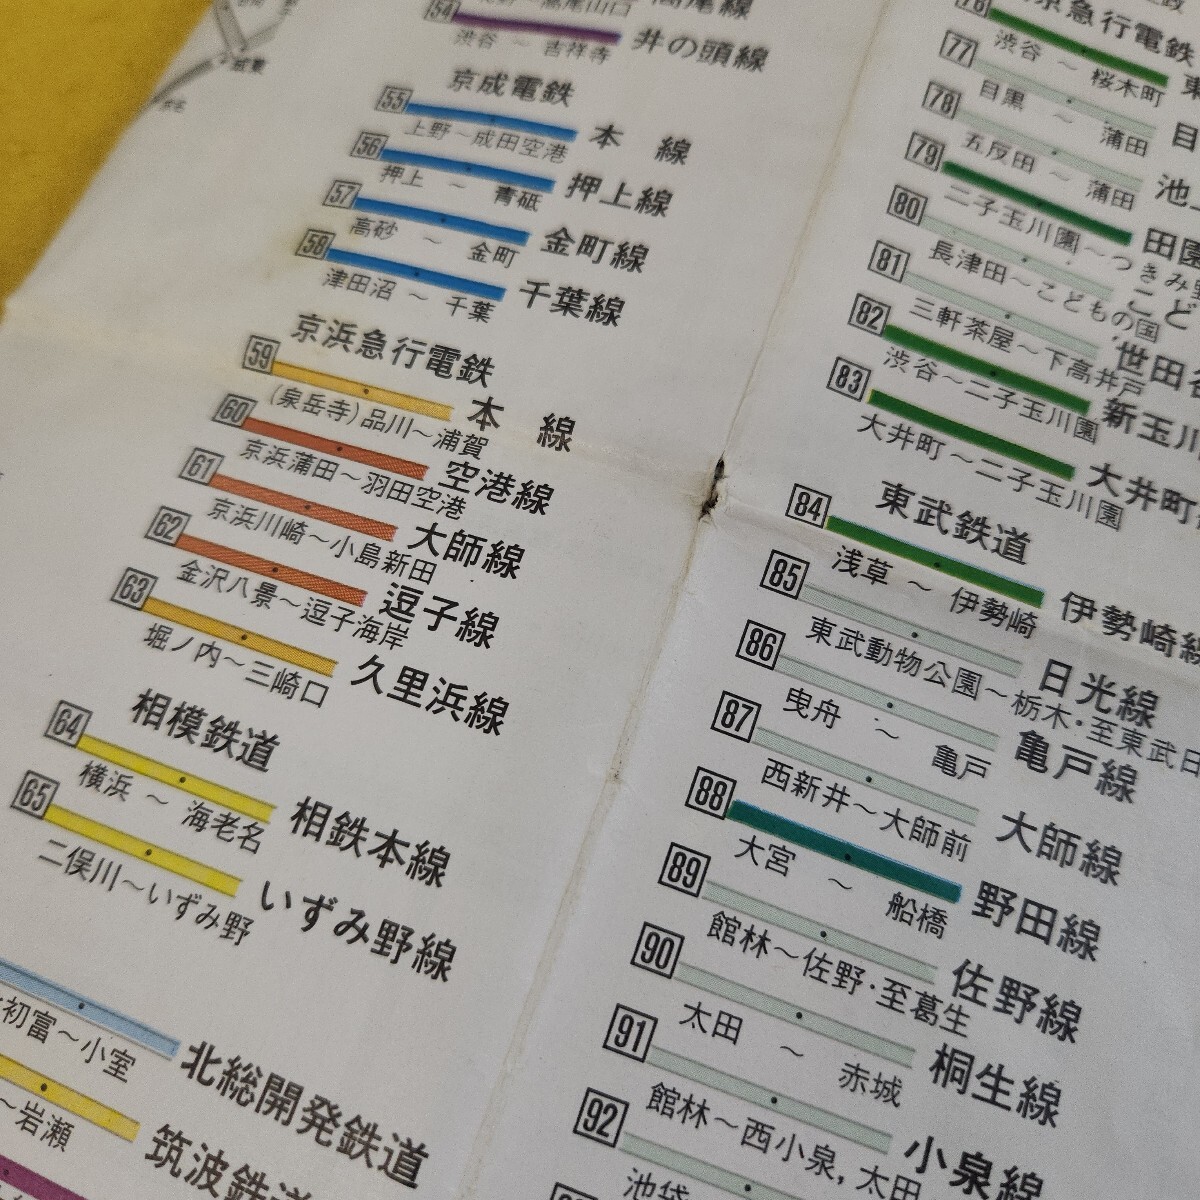 54 高尾山口 高尾線
渋谷 ～ 吉祥寺 井の頭線
京成電鉄
55 上野～成田空港 本　線
56 押上 ～ 青砥 押上線
57 高砂 ～ 金町 金町線
58 津田沼 ～ 千葉 千葉線
京浜急行電鉄
59 (泉岳寺)品川～浦賀 本　線
60 京浜蒲田～羽田空港 空港線
61 京浜川崎～小島新田 大師線
62 金沢八景～逗子海岸 逗子線
63 堀ノ内～三崎口 久里浜線
相模鉄道
64 横浜 ～ 海老名 相鉄本線
65 二俣川～いずみ野 いずみ野線
初富～小室 北総開発鉄道
～岩瀬 筑波鉄道
京急行電鉄
76 渋谷 ～ 桜木町 東
77 目黒 ～ 蒲田 目
78 五反田 ～ 蒲田 池上
79 二子玉川園～つきみ野 田園
80 長津田～こどもの国 こど
81 三軒茶屋～下高井戸 世田谷
82 渋谷～二子玉川園 新玉川
83 大井町～二子玉川園 大井町
東武鉄道
84 浅草 ～ 伊勢崎 伊勢崎線
85 東武動物公園～栃木・至東武日 日光線
86 曳舟 ～ 亀戸 亀戸線
87 西新井～大師前 大師線
88 大宮 ～ 船橋 野田線
89 館林～佐野・至葛生 佐野線
90 太田 ～ 赤城 桐生線
91 館林～西小泉,太田 小泉線
92 池袋